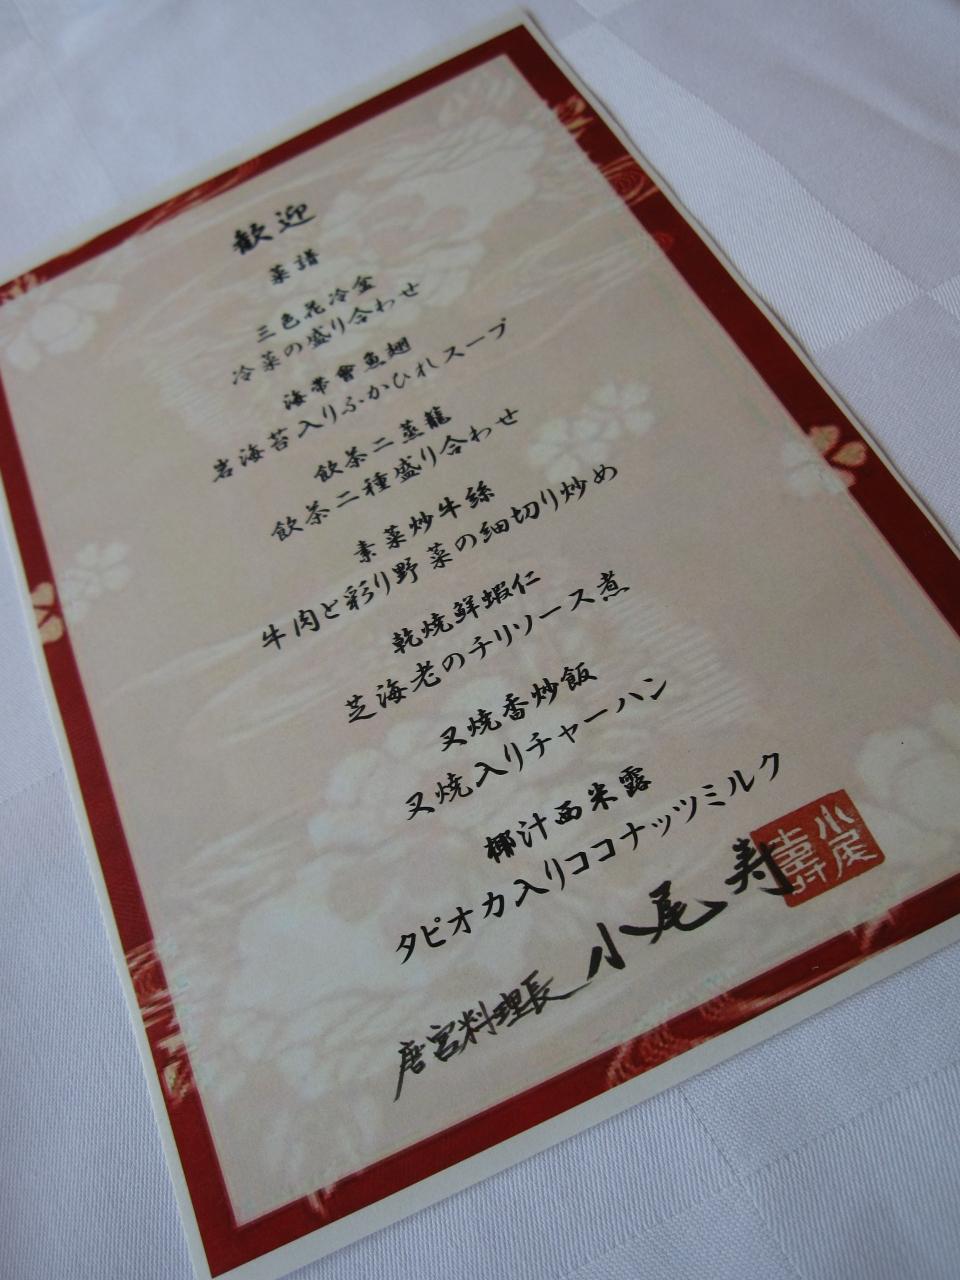 歓迎
菜譜
三色花冷盆
冷菜の盛り合わせ
海苔會魚翅
岩海苔入りふかひれスープ
飲茶二蒸籠
飲茶二種盛り合わせ
素菜炒牛絲
牛肉と彩り野菜の細切り炒め
乾焼鮮蝦仁
芝海老のチリソース煮
叉焼香炒飯
叉焼入りチャーハン
椰汁西米露
タピオカ入りココナッツミルク
唐宮料理長 小尾 寿
小尾
寿